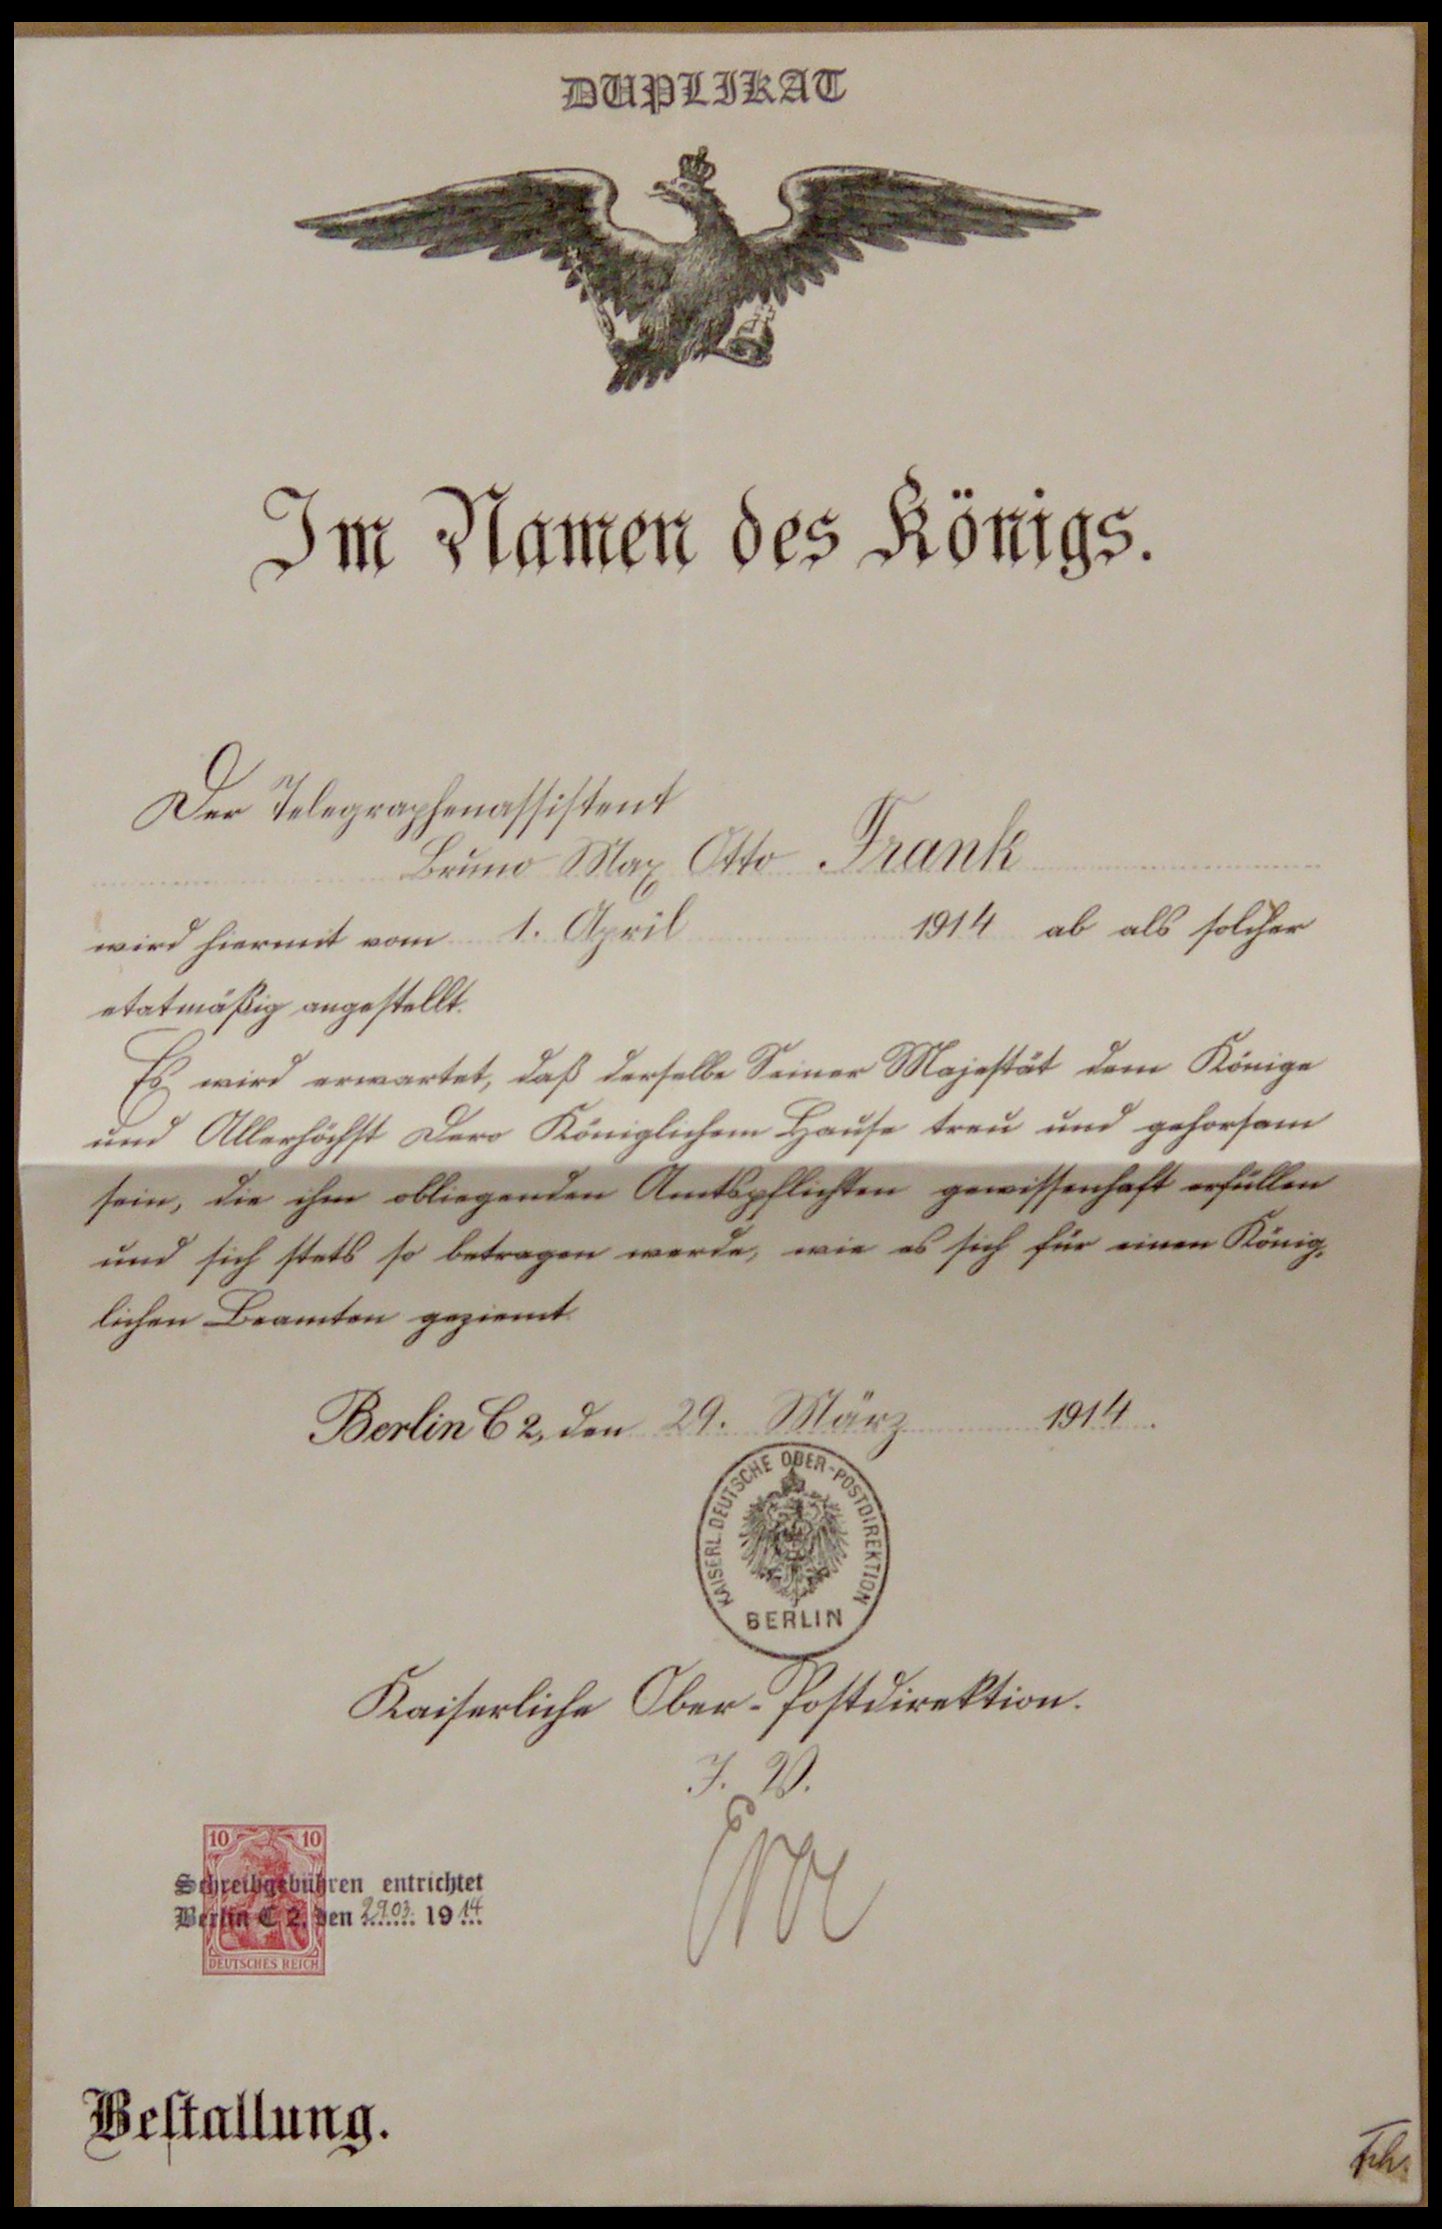 DUPLIKAT
Im Namen des Königs.
Der Telegraphenassistent
Bruno Max Otto Frank
wird hiermit vom 1. April 1914 ab als solcher
etatmäßig angestellt.
Es wird erwartet, daß derselbe Seiner Majestät dem Könige
und Allerhöchst Dero Königlichem Hause treu und gehorsam
sein, die ihm obliegenden Amtspflichten gewissenhaft erfüllen
und sich stets so betragen werde, wie es sich für einen König-
lichen Beamten geziemt.
Berlin C 2, den 29. März 1914.
KAISERL. DEUTSCHE OBER-POSTDIREKTION
BERLIN
Kaiserliche Ober-Postdirektion.
I. V.
10 10
Schreibgebühren entrichtet
Berlin C 2, den 29.03. 1914
DEUTSCHES REICH
Bestallung.